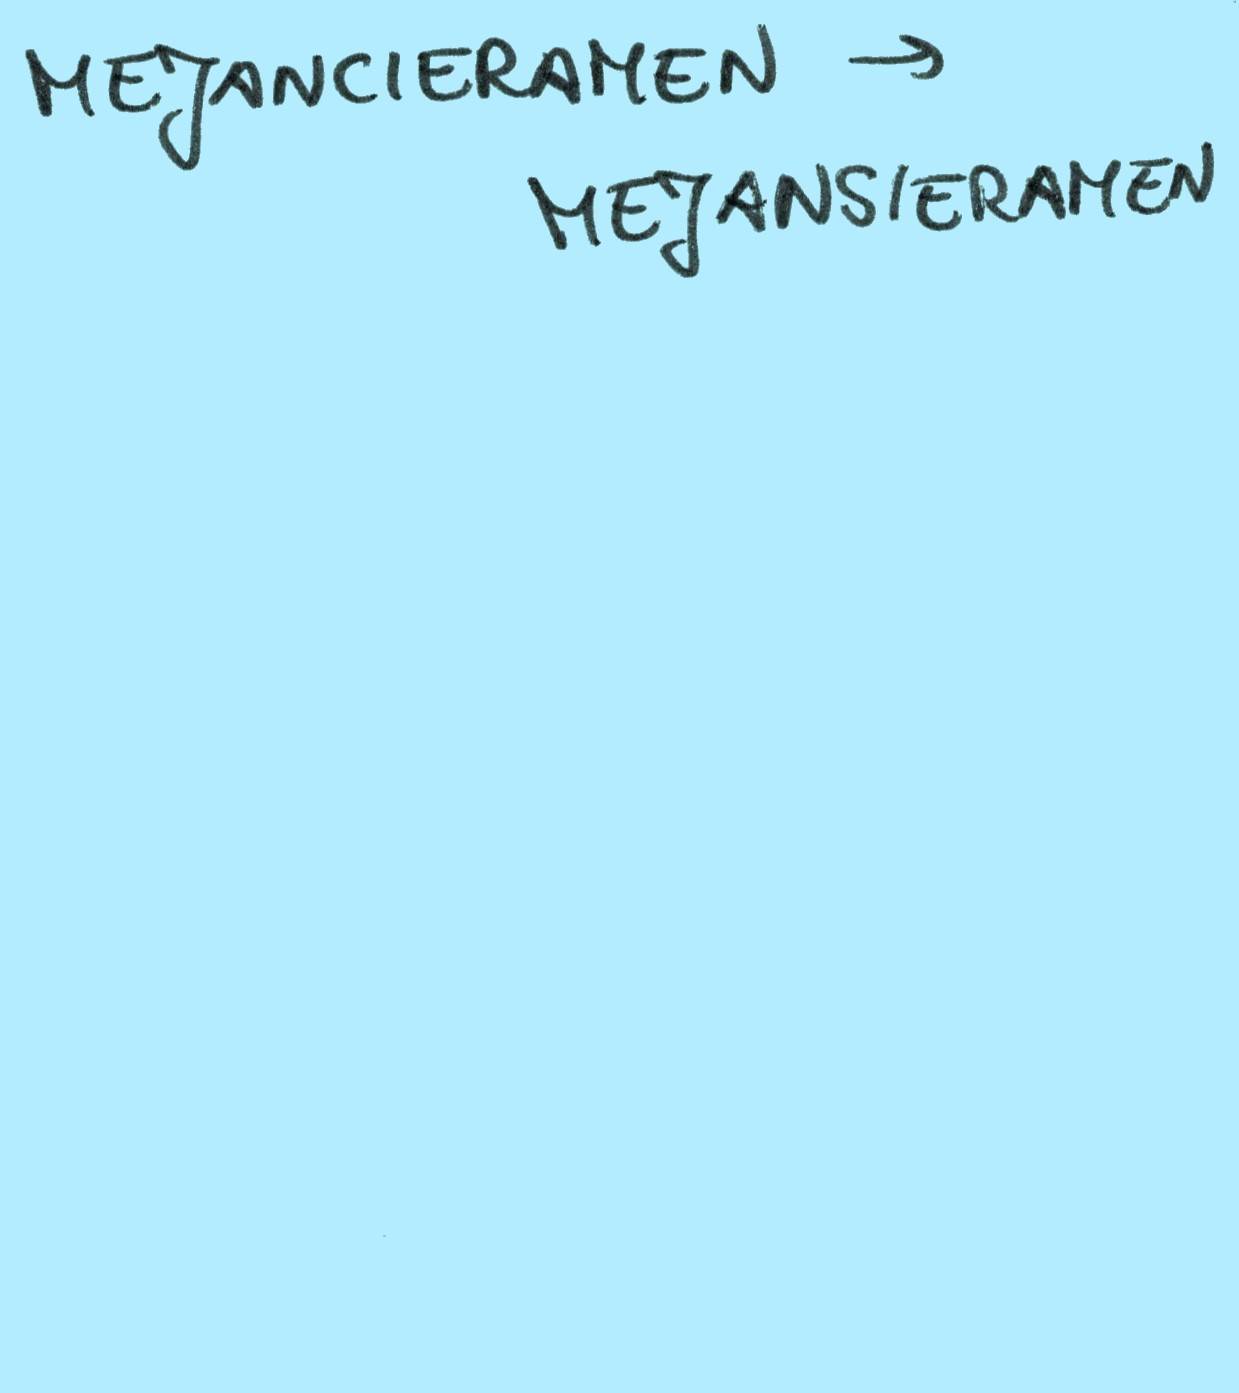 MEJANCIERAMEN →
MEJANSIERAMEN